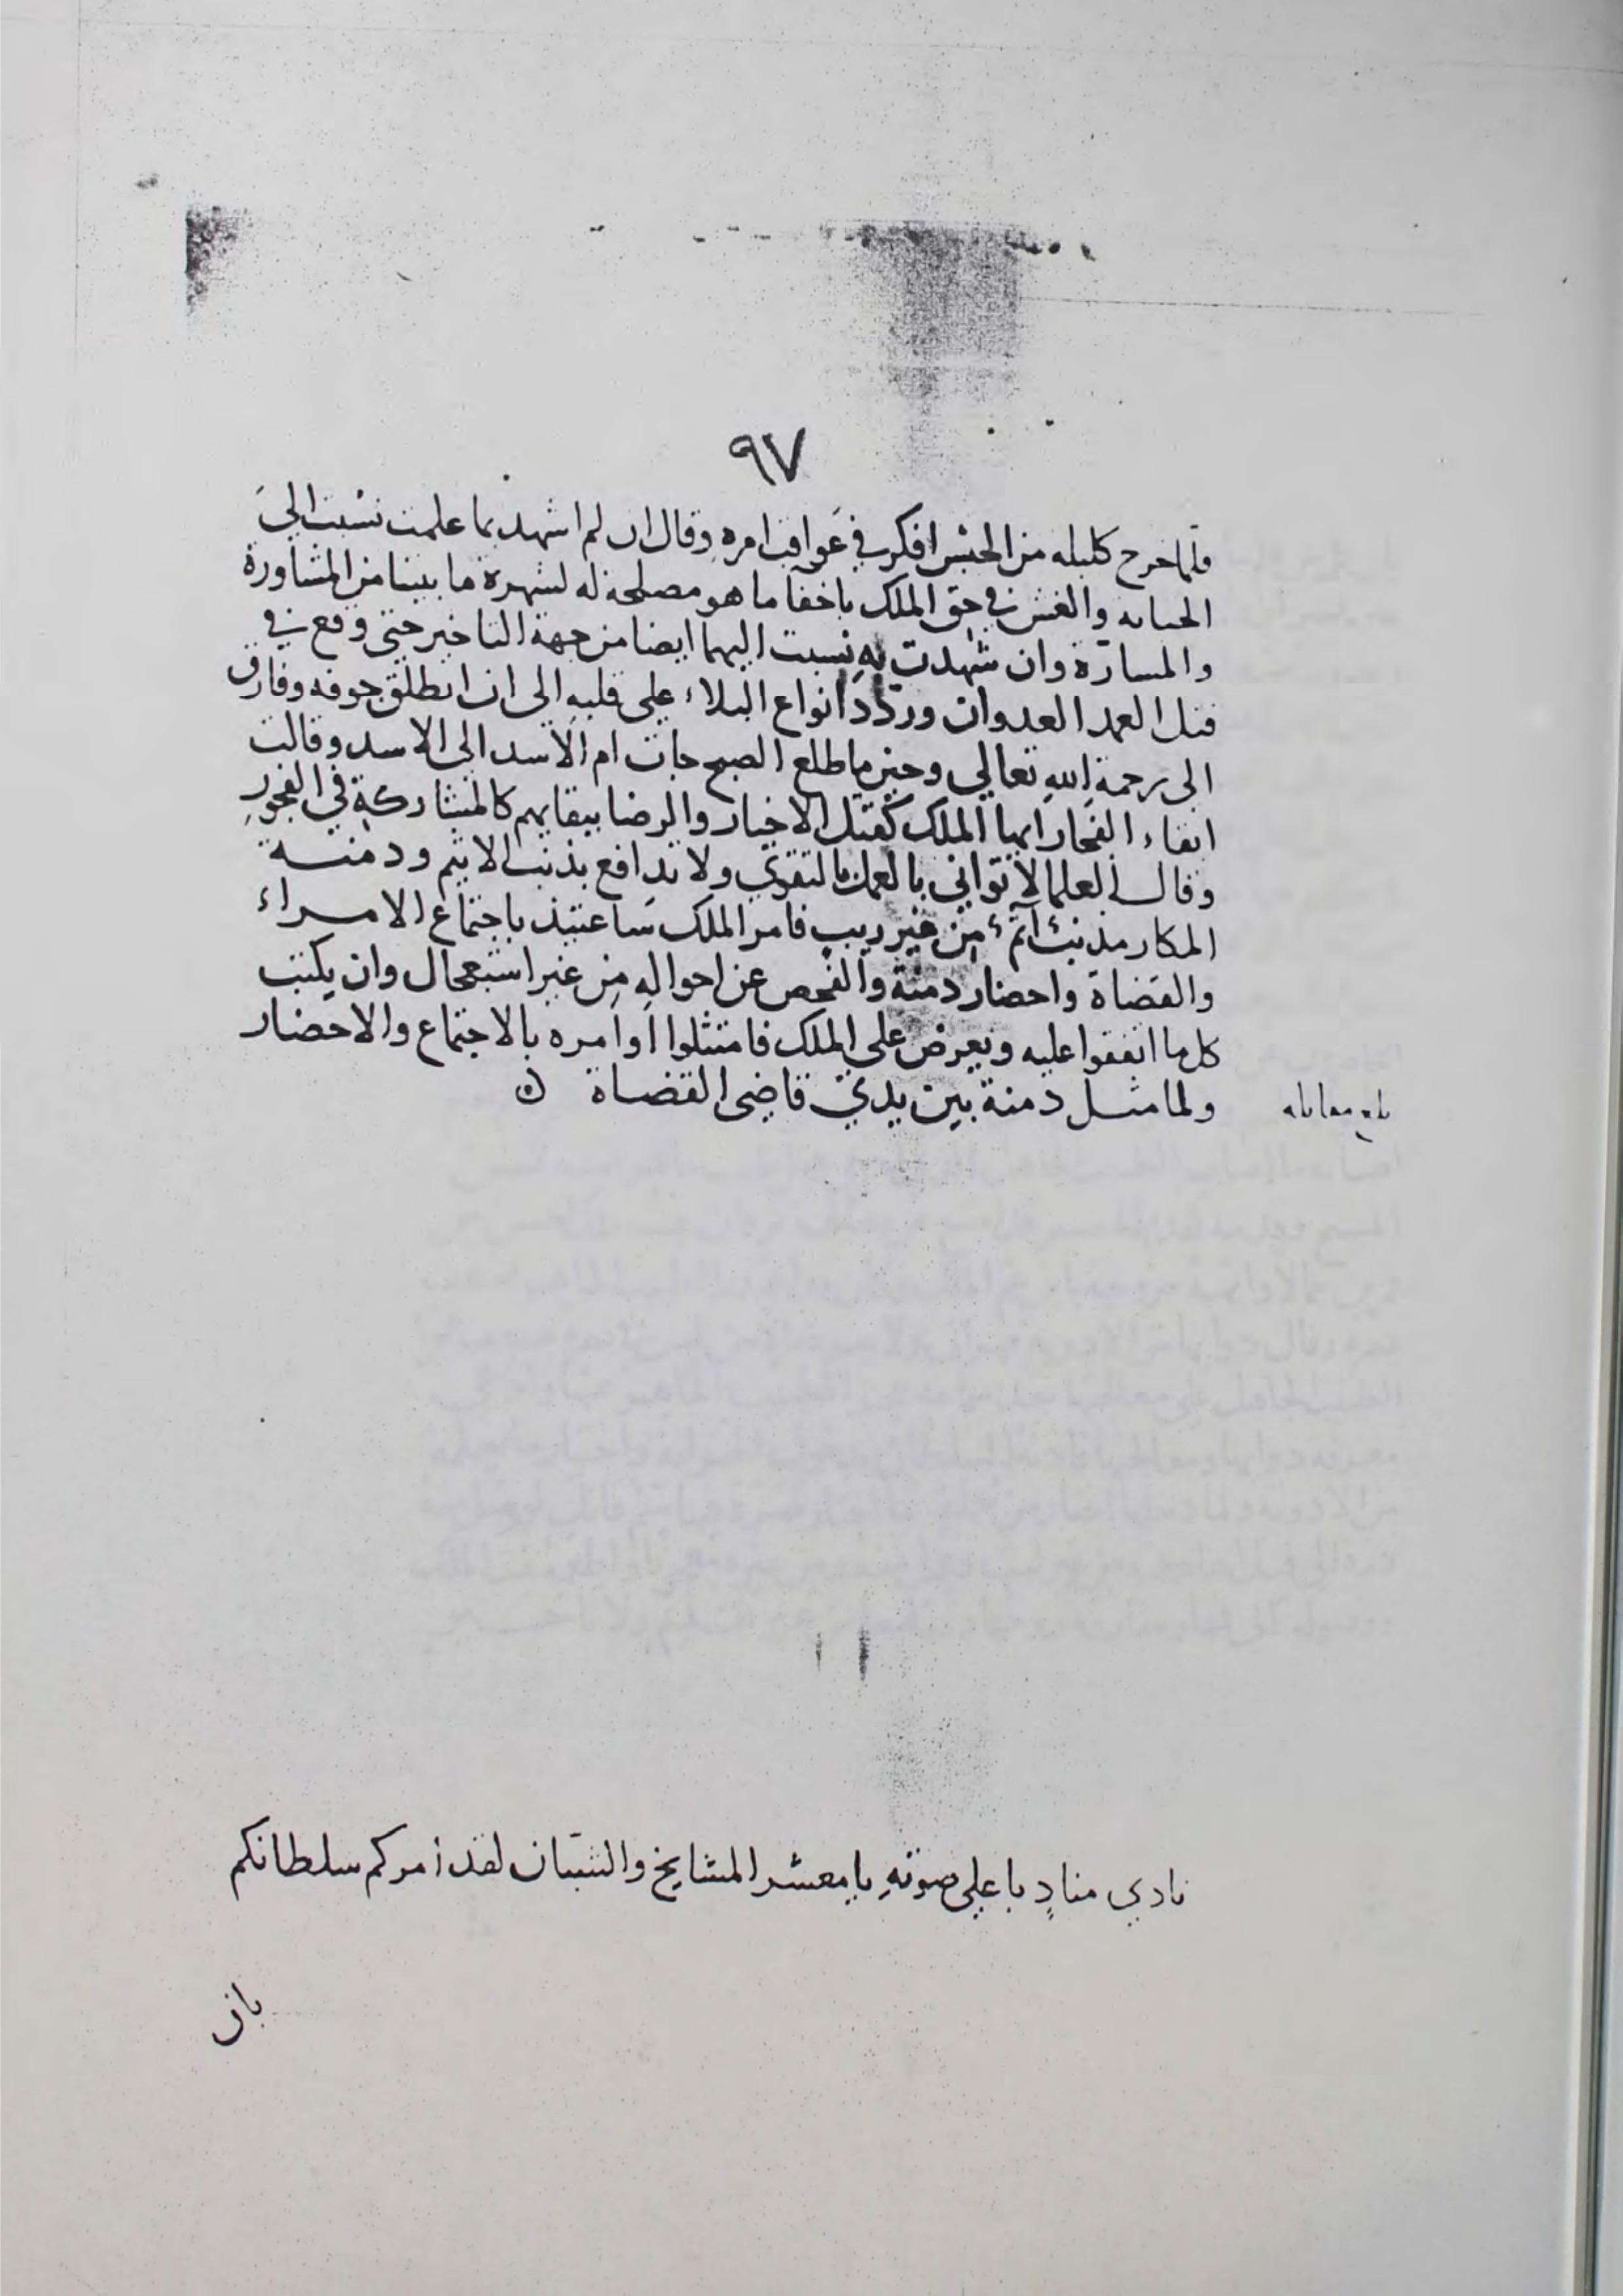 ٩٧
فلما خرج كليله من الحبس افكر في عواقب امره وقال ان لم اشهد بما علمت نسبت الى
الخيانه والغش في حق الملك باخفآ ما هو مصلحة له لشهرة ما بيننا من المشاورة
والمسارّة وان شهدت به نسبت اليهما ايضا من جهة التاخير حتى وقع في
قتل العمد العدوان وردّد انواع البلاء على قلبه الى ان انطلق جوفه وفارق
الى رحمة الله تعالي وحين ما طلع الصبح جات ام الاسد الى الاسد وقالت
ابقاء الفجار ايها الملك كقتل الاخيار والرضا ببقايهم كالمشاركة في الفجور
وقال العلما لا تواني بالعمل بالتقوي ولا تدافع بذنب الاثيم ودمنة
المكار مذنب آثم من غير ريب فامر الملك ساعتئذ باجتماع الامراء
والقضاة واحضار دمنة والفحص عن احواله من غير استعجال وان يكتب
كل ما اتفقوا عليه ويعرض على الملك فامتثلوا اوامره بالاجتماع والاحضار
ولما مثل دمنة بين يدي قاضى القضاة ن
نادي منادٍ باعلى صوته يا معشر المشايخ والشبّان لقد أمركم سلطانكم
بان